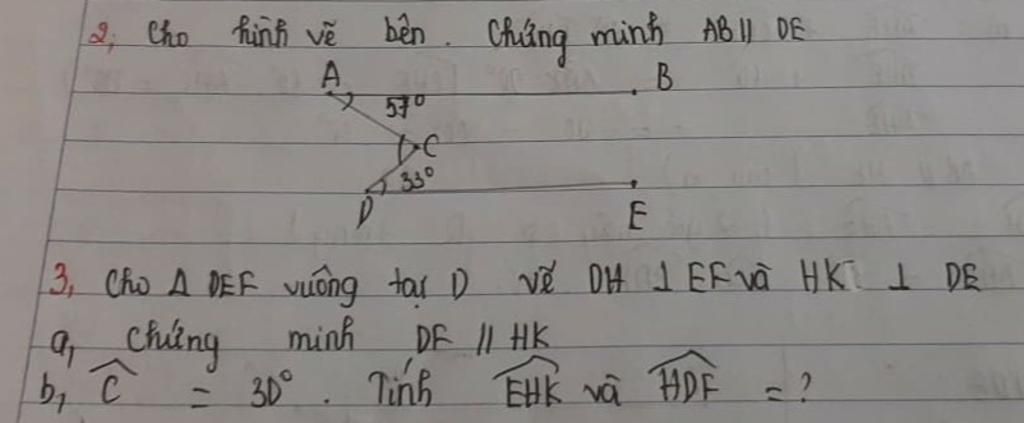 2, Cho hình vẽ bên. Chứng minh AB // DE
A B
57°
C
33°
D E
3, Cho Δ DEF vuông tại D vẽ DH ⊥ EF và HK ⊥ DE
a, Chứng minh DF // HK
b, Ĉ = 30°. Tính \widehat{EHK} và \widehat{HDF} = ?